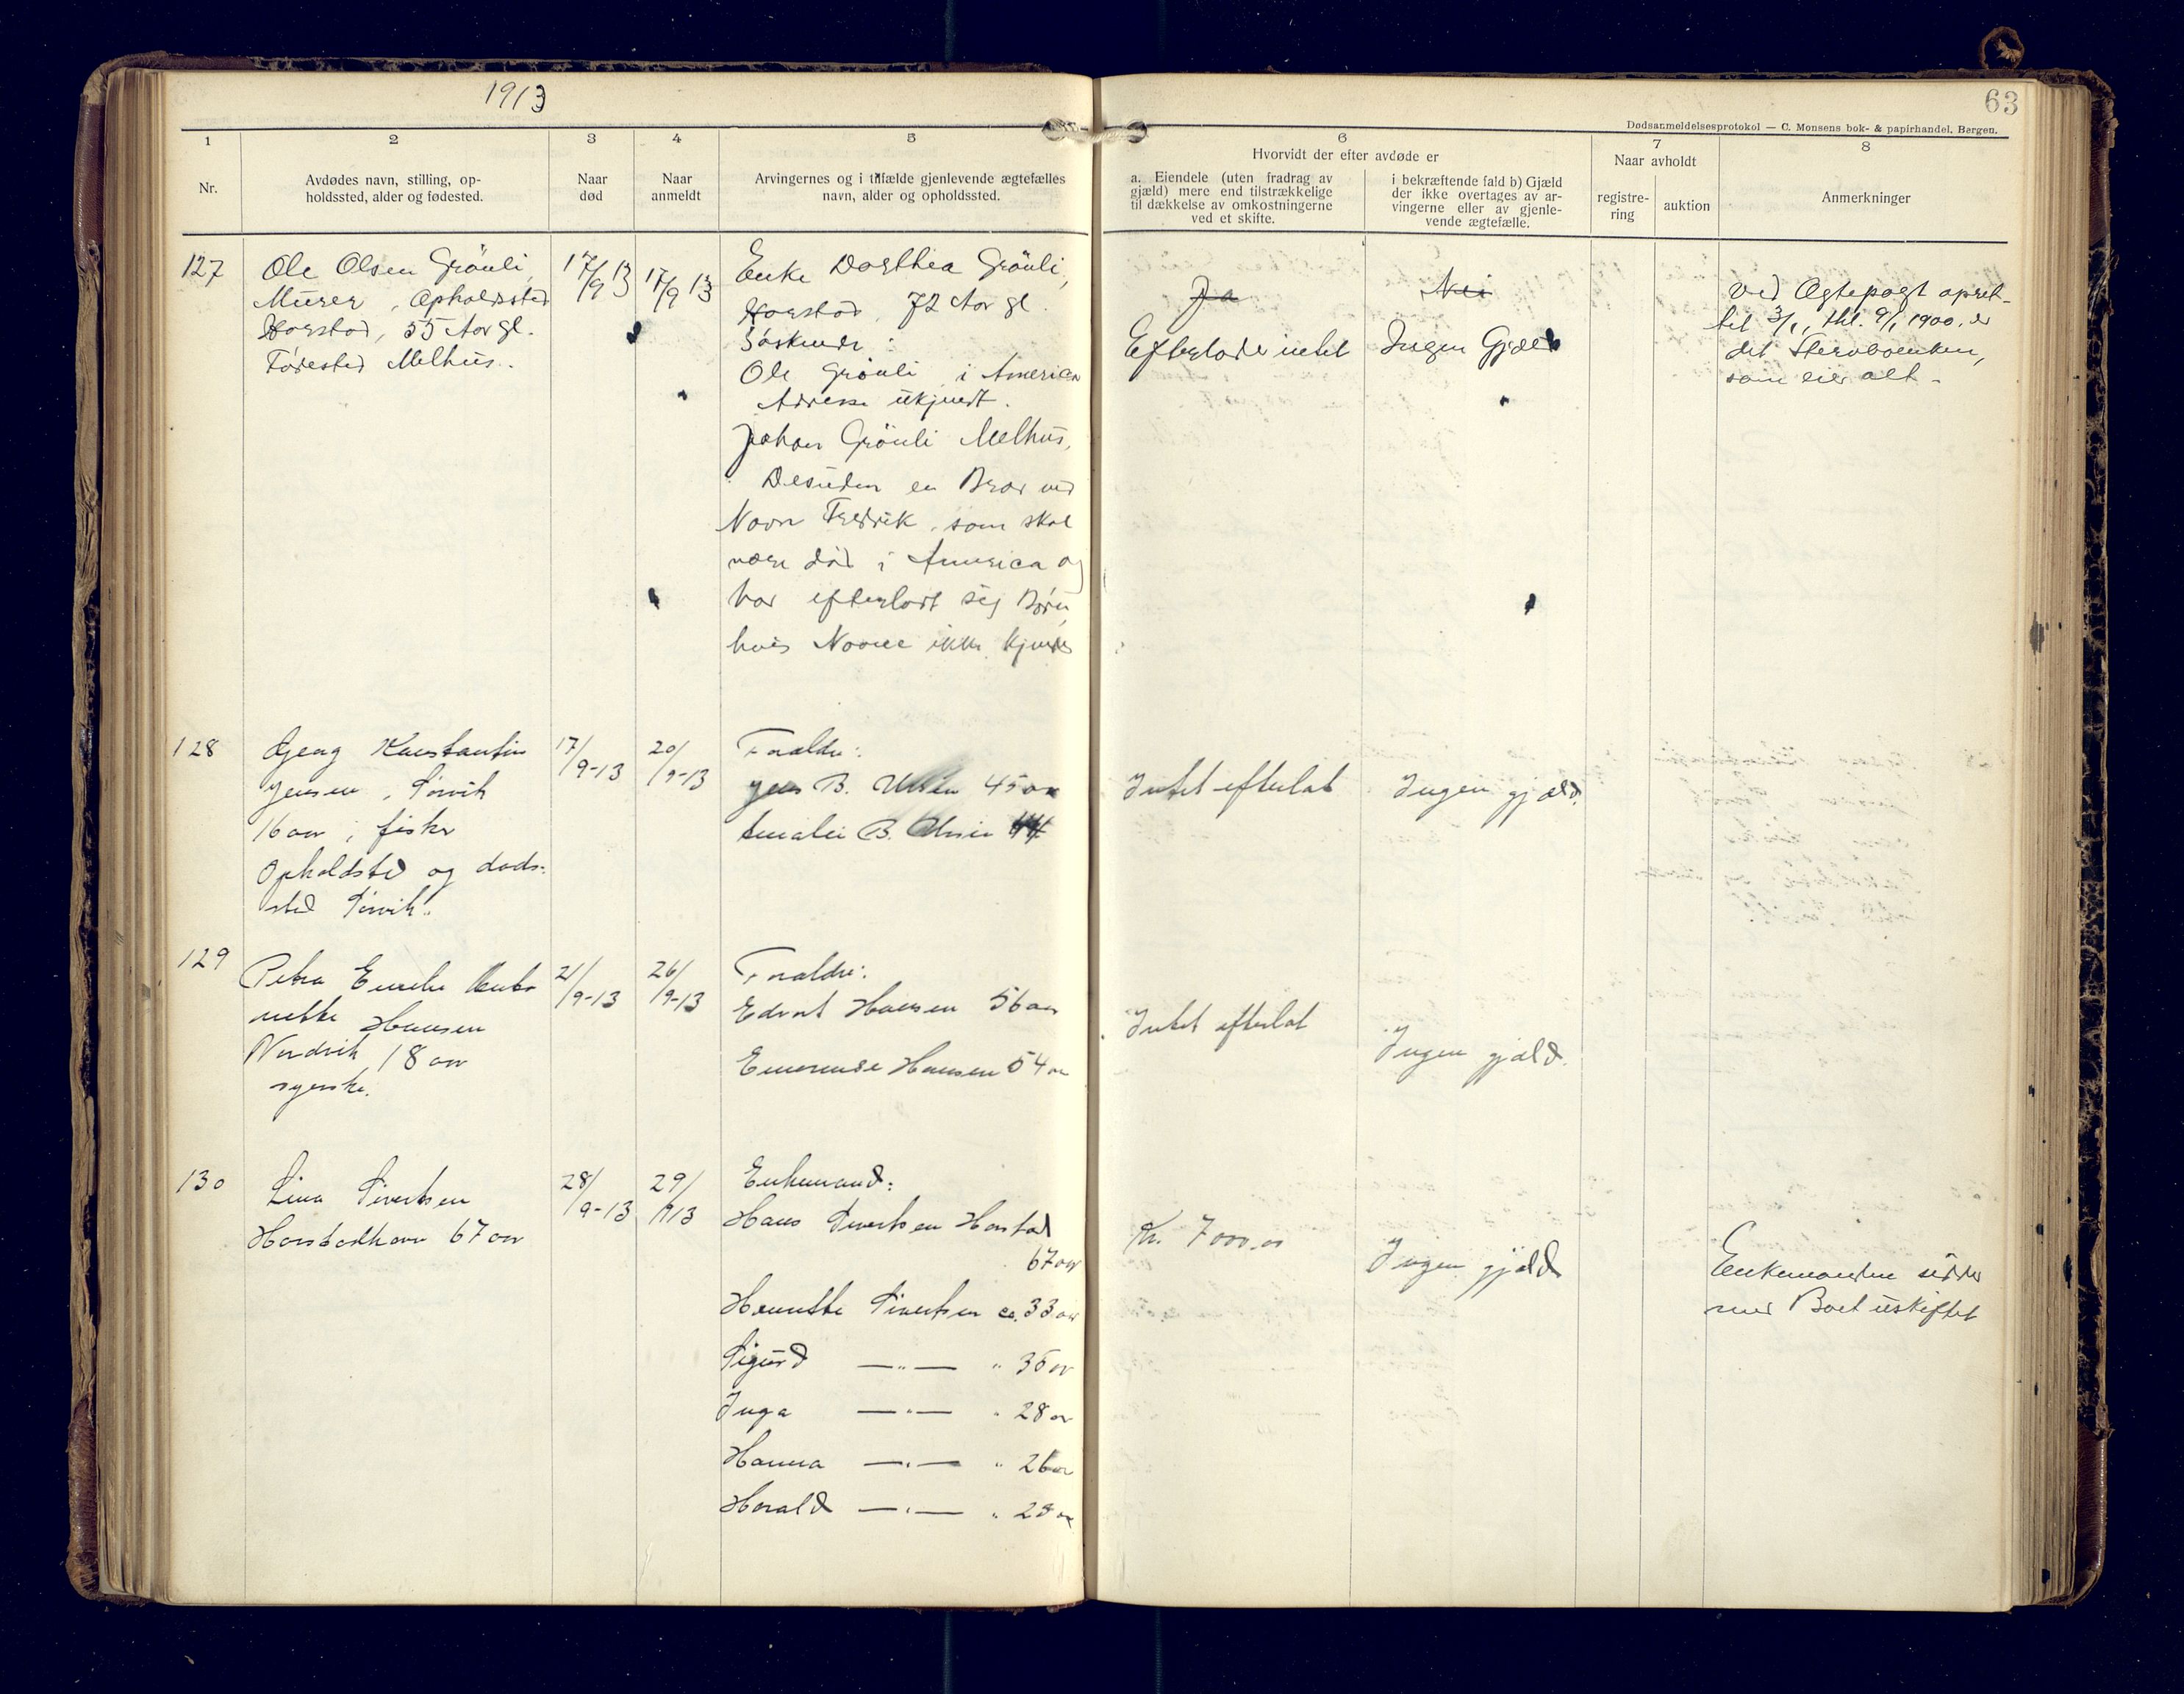 1913
63
Dødsanmeldelsesprotokol — C. Monsens bok- & papirhandel, Bergen.
1
2
3
4
5
6
7
8
Nr.
Avdødes navn, stilling, op-
holdssted, alder og fødested.
Naar
død
Naar
anmeldt
Arvingernes og i tilfælde gjenlevende ægtefælles
navn, alder og opholdssted.
Hvorvidt der efter avdøde er
a. Eiendele (uten fradrag av
gjæld) mere end tilstrækkelige
til dækkelse av omkostningerne
ved et skifte.
i bekræftende fald b) Gjæld
der ikke overtages av ar-
vingerne eller av gjenle-
vende ægtefælle.
Naar avholdt
registre-
ring
auktion
Anmerkninger
127
Ole Olsen Grönli,
Murer, Opholdssted
Harstad, 55 Aar gl.
Fødested Melhus.
17/9 13
17/9 13
Enke Dorthea Grönli,
Harstad, 72 Aar gl.
Söskende:
Ole Grönli i America
Adresse ukjendt.
Johan Grönli Melhus,
Desuden en Bror ved
Navn Fredrik, som skal
være död i America og
har efterladt sig Börn,
hvis Navne ikke kjendes
Ja
Efterlader intet
Nei
Ingen Gjæld
Ved Ægtepagt opret-
tet 3/1, thl. 9/1 1900, er
det Stervboenken,
som eier alt.
128
Georg Konstantin
Jensen, Sørvik
16 aar, fisker
Opholdsted og døds-
sted Sørvik.
17/9-13
20/9-13
Forældre:
Jens B. Olsen 45 aar
Amalie B. Olsen 44
Intet efterlat
Ingen gjæld.
129
Petra Emelie
Hansen
Nordvik, 18 aar
syerske.
21/9-13
26/9-13
Forældre:
Edvart Hansen 56 aar
Emerense Hansen 54 aar
Intet efterlat
Ingen gjæld.
130
Lina Sivertsen
Harstadhavn 67 aar
28/9-13
29/9 13
Enkemand:
Hans Sivertsen Harstad
67 aar
Henrikke Sivertsen ca. 33 aar
Sigurd —„— „ 35 aar
Inga —„— „ 28 aar
Hanna —„— „ 26 aar
Harald —„— „ 28 aar
Kr. 7000,00
Ingen gjæld
Enkemanden sidder
med Boet uskiftet